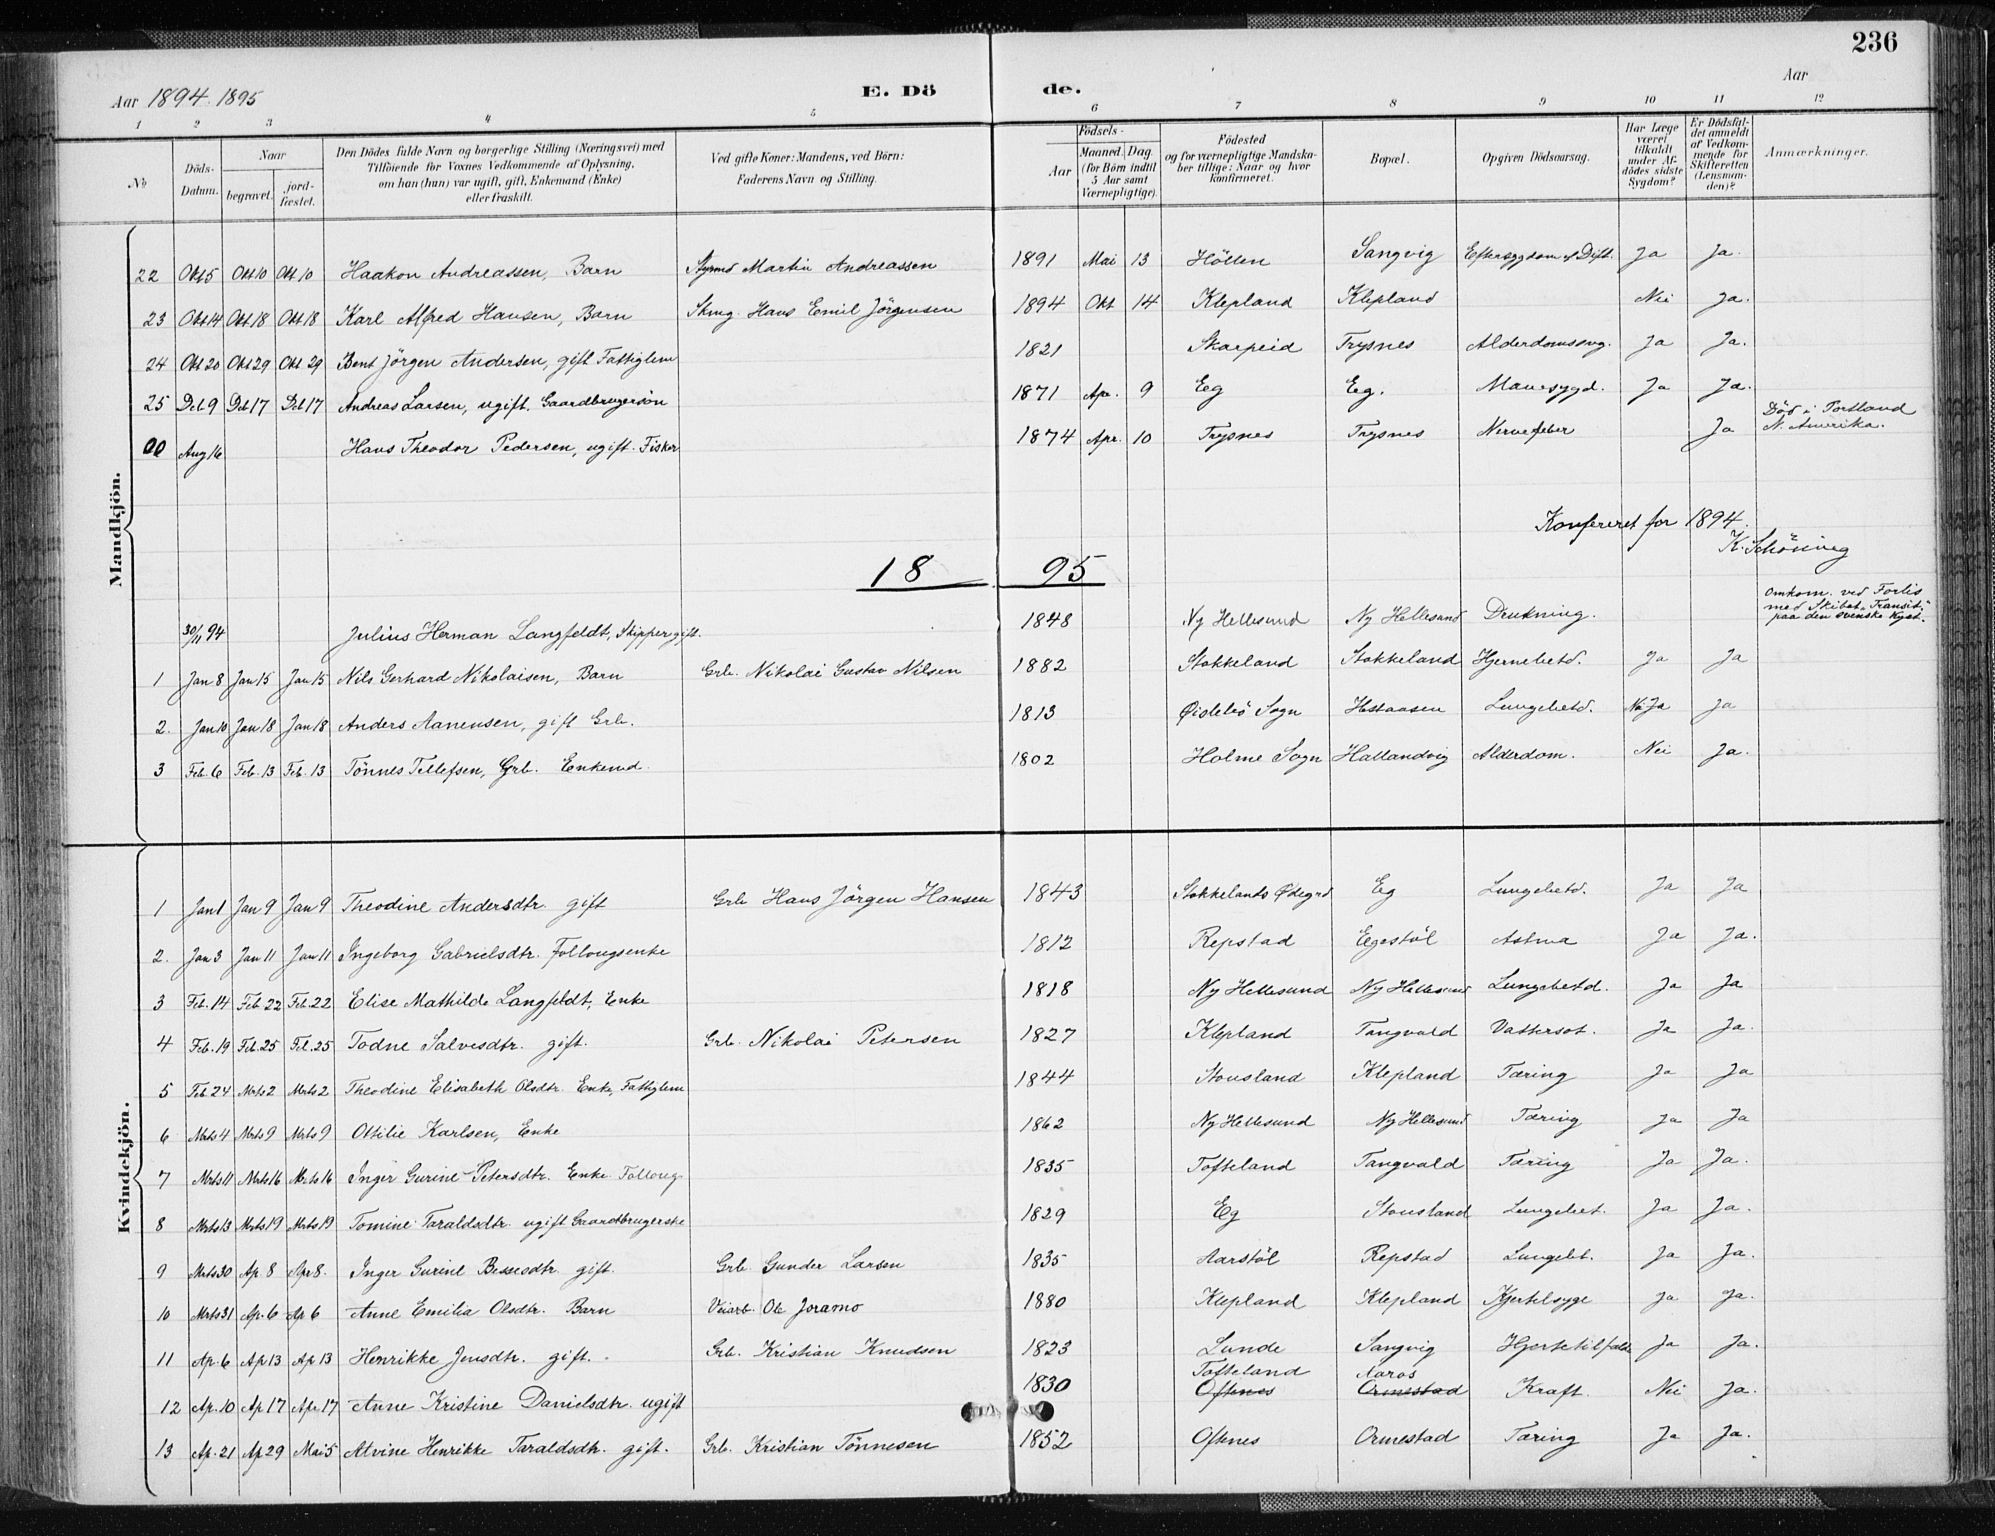 236
Aar 1894. 1895 E. Dö de. Aar
1 2 3 4 5 6 7 8 9 10 11 12
No Döds-Datum. Naar begravet. jordfæstet. Den Dödes fulde Navn og borgerlige Stilling (Næringsvei) med Tilföiende for Voxnes Vedkommende af Oplysning, om han (hun) var ugift, gift, Enkemand (Enke) eller fraskilt. Ved gifte Koner: Mandens, ved Börn: Faderens Navn og Stilling. Födsels- Aar Maaned. Dag (for Börn indtil 5 Aar samt Værnepligtige). Födested og for værnepligtige Mandskaber tillige: Naar og hvor konfirmeret. Bopæl. Opgiven Dödsaarsag. Har Læge været tilkaldt under Afdödes sidste Sygdom? Er Dödsfaldet anmeldt af Vedkommende for Skifteretten (Lensmanden)? Anmærkninger.
Mandkjön.
22 Okt 5 Okt 10 Okt 10 Haakon Andreassen, Barn Styrmd Martin Andreassen 1891 Mai 13 Höllen Sangvig Eftersygdom af Dift. Ja Ja.
23 Okt 14 Okt 18 Okt 18 Karl Alfred Hansen, Barn Hans Emil Jörgensen 1894 Okt 14 Klepland Klepland Nei Ja.
24 Okt 20 Okt 29 Okt 29 Bent Jörgen Andersen, gift Fattiglem 1821 Skarpeid Trysnes Alderdomssvag. Ja Ja.
25 Deb 9 Deb 17 Deb 17 Andreas Larsen, ugift. Gaardbrugersön 1871 Apr. 9 Eeg Eeg. Mavesygd. Ja Ja.
00 Aug 16 Hans Theodor Pedersen, ugift. Fisker 1874 Apr. 10 Trysnes Trysnes Nervefeber Ja Död i Portland N. Amerika.
Konfereret for 1894.
K. Schöning
18 95
30/11 94 Julius Herman Langfeldt, Skipper gift. 1848 Ny Hellesund Ny Hellesund Drukning. Omkom. ved Forlis med Skibet "Transit" paa den svenske Kyst.
1 Jan 8 Jan 15 Jan 15 Nils Gerhard Nikolaisen, Barn Grb. Nikolai Gustav Nilsen 1882 Stokkeland Stokkeland Hjernebetd. Ja Ja
2. Jan 10 Jan 18 Jan 18 Anders Aanensen, gift Grb. 1813 Øislebö Sogn Lungebetd. Ja Ja
3 Feb. 6 Feb. 13 Feb. 13 Tönnes Tellefsen, Grb. Enkemd. 1802 Holme Sogn Hallandvig Alderdom. Nei Ja.
Kvindekjön.
1 Jan 1 Jan 9 Jan 9 Theodine Andersdtr. gift Grb Hans Jörgen Hansen 1843 Stokkelands Ødegrd Eg Lungebetd. Ja Ja
2. Jan 3 Jan 11 Jan 11 Ingeborg Gabrielsdtr. Follougsenke 1812 Repstad Egestöl Astma Ja Ja.
3 Feb. 14 Feb 22 Feb. 22 Elise Mathilde Langfeldt, Enke 1818 Ny Hellesund Ny Hellesund Lungebetd. Ja Ja
4 Feb. 19 Feb. 25 Feb. 25 Todne Salvesdtr. gift. Grb. Nikolai Petersen 1827 Klepland Tangvald Vattersot. Ja Ja.
5 Feb 24 Mrts 2 Mrts 2 Theodine Elisabeth Olsdtr. Enke, Fattiglem 1844 Stousland Klepland Tæring Ja Ja
6 Mrts 4 Mrts 9 Mrts 9 Ottilie Karlsen, Enke 1862 Ny Hellesund Ny Hellesund Tæring Ja Ja
7 Mrts 11 Mrts 16 Mrts 16 Inger Gurine Petersdtr. Enke Folloug. 1835 Tofteland Tangvald Tæring Ja Ja.
8 Mrts 13 Mrts 19 Mrts 19 Tomine Taraldsdtr. ugift Gaardbrugerske 1829 Eg Stousland Lungebet. Ja Ja.
9 Mrts 30 Ap 8 Apr 8. Inger Gurine Bessesdtr. gift. Grb. Gunder Larsen 1835 Aarstöl Repstad Lungebt. Ja Ja.
10 Mrts 31 Ap. 6 Ap 6 Anne Emilia Olsdtr. Barn Veiarb. Ole Joramo 1880 Klepland Klepland Kjertelsyge Ja Ja.
11 Ap. 6 Ap 13 Ap 13 Henrikke Jensdtr. gift. Grb. Kristian Knudsen 1823 Lunde Sangvig Hjertetilfælde Ja Ja.
12 Ap. 10 Ap 17 Apr 17 Anne Kristine Danielsdtr. ugift 1830 Tofteland Oftenes Aaros Ormestad Kraft. Nei Ja.
13 Ap. 21 Ap 29 Mai 5 Alvine Henrikke Taraldsdtr. gift. Grb. Kristian Tönnesen 1852 Oftnes Ormestad Tæring Ja Ja.